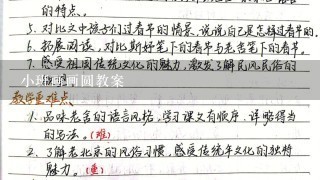 的特点。
5. 对比文中孩子们过春节的情景,说说自己是怎样过春节的。
6. 拓展阅读,对比斯妤笔下的春节与老舍笔下的春节。
7. 感受祖国传统文化的魅力,激发了解民风民俗的
小班画画圆教案
教学重难点
1. 品味老舍的语言风格,学习课文有顺序、详略得当
的写法。(难)
2. 了解老北京的风俗习惯,感受传统年文化的独特
魅力。(重)